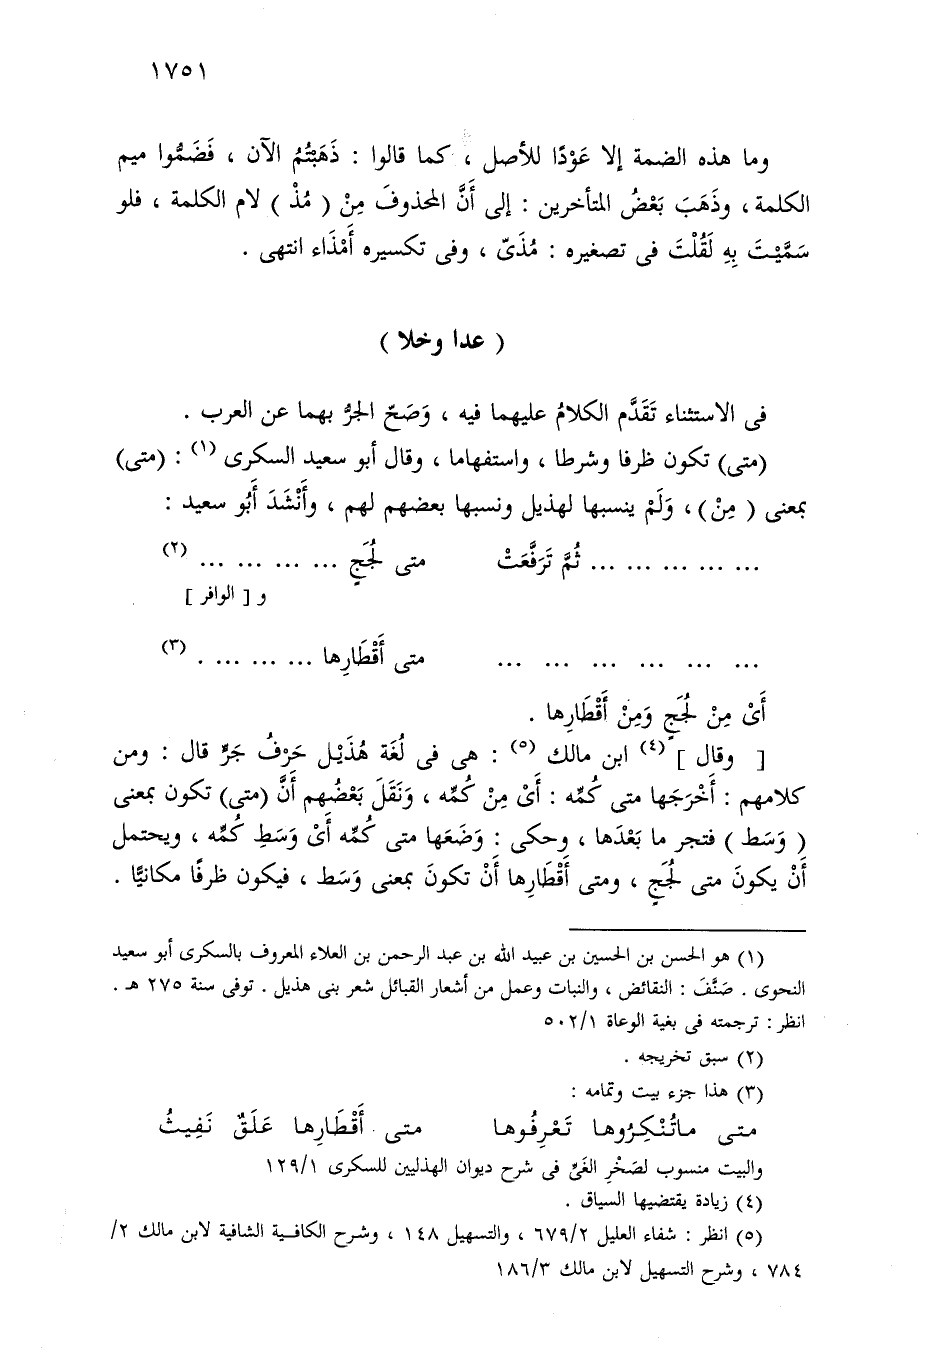 ١٧٥١
وما هذه الضمة إلا عَوْدًا للأصل ، كما قالوا : ذَهَبْتُمُ الآن ، فَضَمُّوا ميم
الكلمة ، وذَهَبَ بَعْضُ المتأخرين : إلى أَنَّ المحذوفَ مِنْ ( مُذْ ) لام الكلمة ، فلو
سَمَّيْتَ بِهِ لَقُلْتَ فى تصغيره : مُذَىّ ، وفى تكسيره أَمْذَاء انتهى .
( عدا وخلا )
فى الاستثناء تَقَدَّم الكلامُ عليهما فيه ، وَصَحّ الجرُّ بهما عن العرب .
(متى) تكون ظرفا وشرطا ، واستفهاما ، وقال أبو سعيد السكرى (١) : (متى)
بمعنى ( مِنْ ) ، وَلَمْ ينسبها لهذيل ونسبها بعضهم لهم ، وأَنْشَدَ أَبُو سعيد :
... ... ... ... ... ثُمَّ تَرَفَّعَتْ متى لُجَجٍ ... ... ... ... (٢)
و [ الوافر ]
... ... ... ... ... ... متى أَقْطَارِها ... ... ... . (٣)
أَىْ مِنْ لُجَجٍ وَمِنْ أَقْطَارِها .
[ وقال ] (٤) ابن مالك (٥) : هى فى لُغَة هُذَيْل حَرْفُ جَرٍّ قال : ومن
كلامهم : أَخْرَجَها متى كُمِّه : أَىْ مِنْ كُمِّه ، وَنَقَلَ بَعْضُهم أَنَّ (متى) تكون بمعنى
( وَسَط ) فتجر ما بَعْدَها ، وحكى : وَضَعَها متى كُمِّه أَىْ وَسَطِ كُمِّه ، ويحتمل
أَنْ يكونَ متى لُجَجٍ ، ومتى أَقْطَارِها أَنْ تكونَ بمعنى وَسَط ، فيكون ظرفًا مكانيًّا .
(١) هو الحسن بن الحسين بن عبيد الله بن عبد الرحمن بن العلاء المعروف بالسكرى أبو سعيد
النحوى . صَنَّفَ : النقائض ، والنبات وعمل من أشعار القبائل شعر بنى هذيل . توفى سنة ٢٧٥ هـ .
انظر : ترجمته فى بغية الوعاة ٥٠٢/١
(٢) سبق تخريجه .
(٣) هذا جزء بيت وتمامه :
متـى ماتُنْكِرُوهـا تَعْرِفُوها متـى أَقْطَارِها عَلَقٌ نَفِيثُ
والبيت منسوب لصَخْرِ الغَىِّ فى شرح ديوان الهذليين للسكرى ١٢٩/١
(٤) زيادة يقتضيها السياق .
(٥) انظر : شفاء العليل ٦٧٩/٢ ، والتسهيل ١٤٨ ، وشرح الكافـية الشافية لابن مالك ٢/
٧٨٤ ، وشرح التسهيل لابن مالك ١٨٦/٣